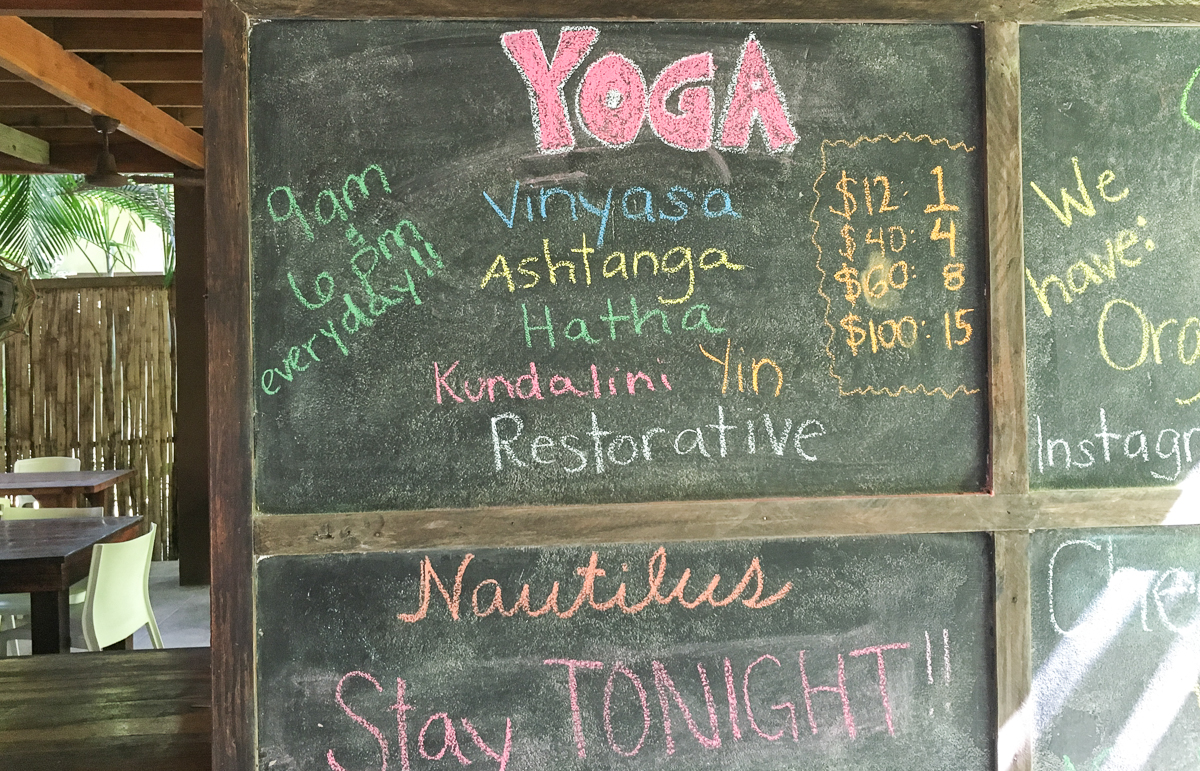 YOGA
9am
&
6pm
everyday!!
Vinyasa
Ashtanga
Hatha
Kundalini Yin
Restorative
$12: 1
$40: 4
$60: 8
$100: 15
Nautilus
Stay TONIGHT"
We
have: